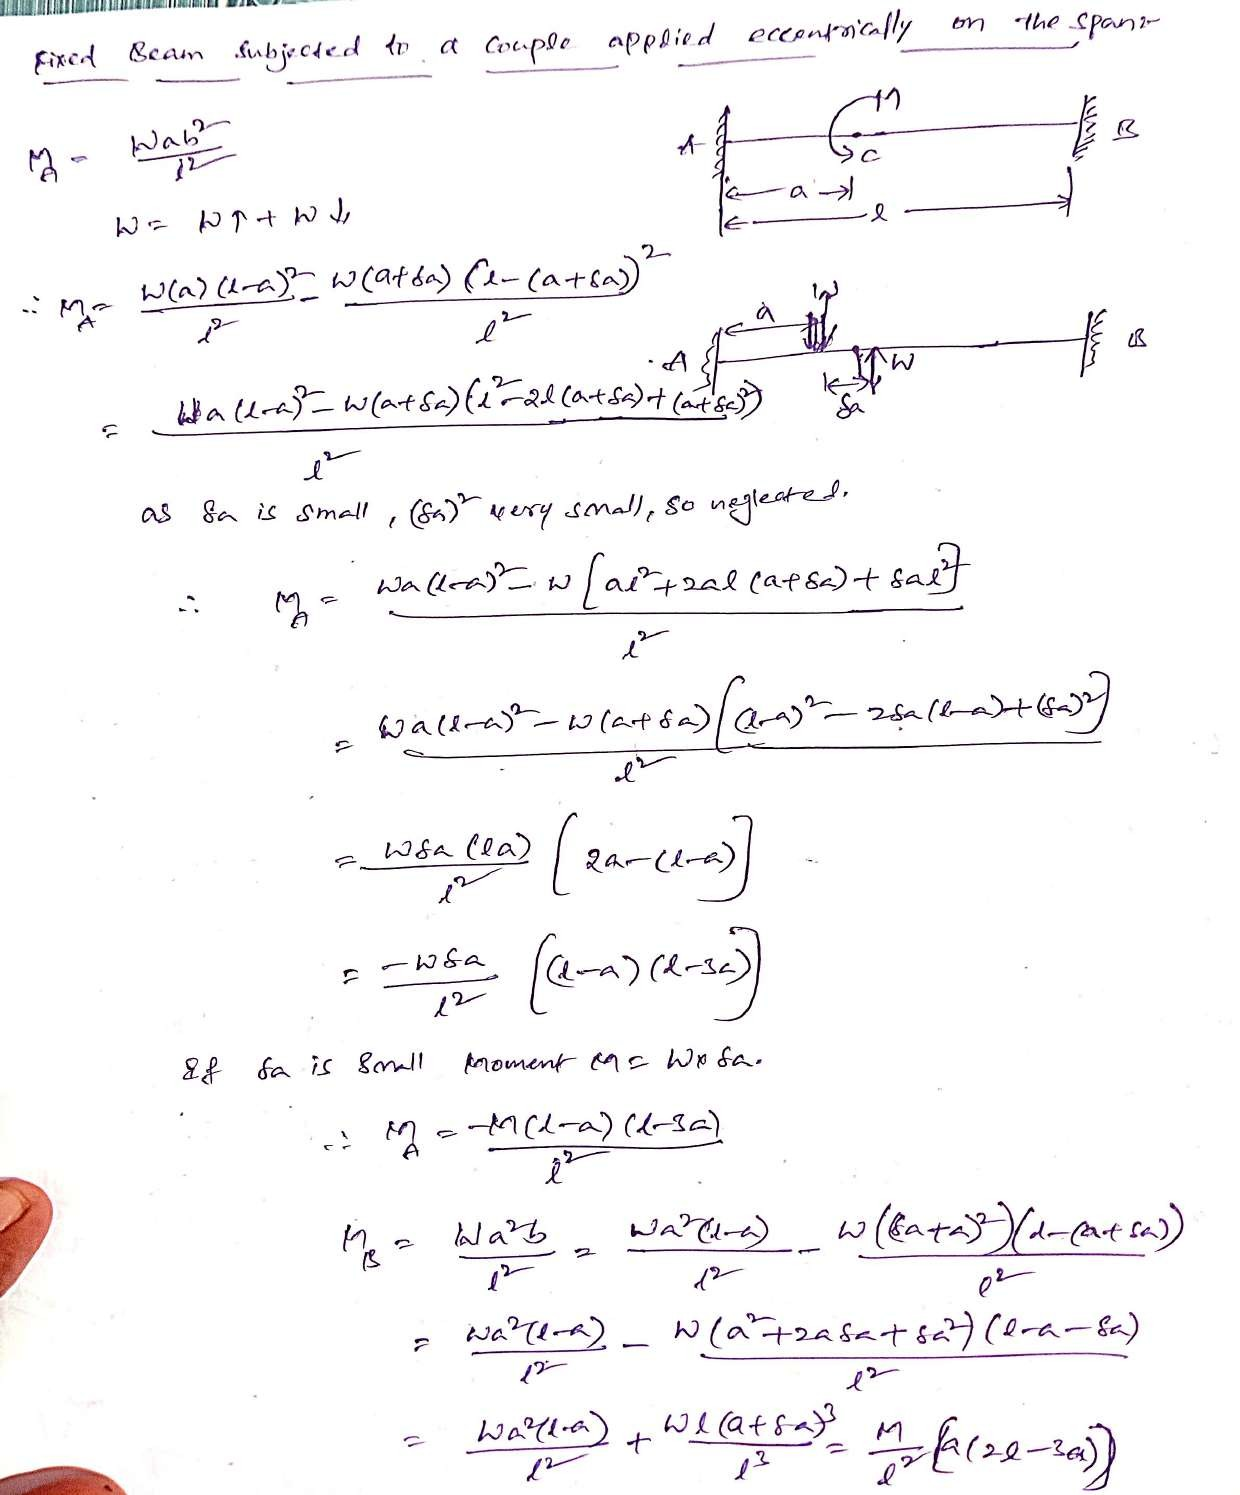 Fixed Beam Subjected to a Couple applied eccentrically on the span:-
M_A = Wab²/l²
M
A
B
C
a
l
W = W↑ + W↓
∴ M_A = W(a)(l-a)²/l² - W(a+δa)(l-(a+δa))²/l²
a
W
A
B
W
δa
= Wa(l-a)² - W(a+δa)(l²-2l(a+δa)+(a+δa)²) / l²
as δa is small, (δa)² very small, so neglected.
∴ M_A = Wa(l-a)² - W[al²+2al(a+δa)+δal²] / l²
= Wa(l-a)² - W(a+δa)[(l-a)² - 2δa(l-a)+(δa)²] / l²
= Wδa(la)/l² [2a-(l-a)]
= -Wδa/l² [(l-a)(l-3a)]
If δa is small Moment M = W×δa.
∴ M_A = -M(l-a)(l-3a)/l²
M_B = Wa²b/l² = Wa²(l-a)/l² - W(δa+a)²)(l-(a+δa))/l²
= Wa²(l-a)/l² - W(a²+2aδa+δa²)(l-a-δa)/l²
= Wa²(l-a)/l² + Wl(a+δa)³/l³ = M/l² [a(2l-3a)]